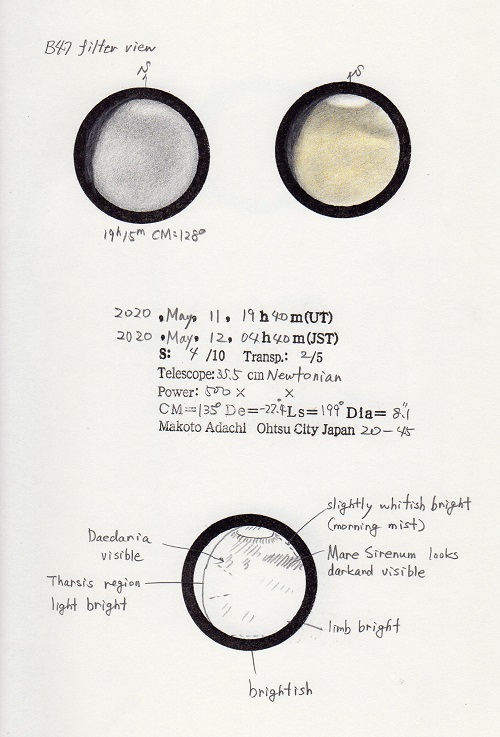 B47 filter view
S
S
19h15m CM=128°
2020 , May, 11, 19h40m(UT)
2020 , May, 12, 04h40m(JST)
S: 4 /10 Transp.: 2/5
Telescope: 35.5 cm Newtonian
Power: 500 × ×
CM=135° De=-22.4° Ls=199° Dia= 8."1
Makoto Adachi Ohtsu City Japan 20-45
slightly whitish bright
(morning mist)
Daedaria
visible
Mare Sirenum looks
darkand visible
Tharsis region
light bright
limb bright
brightish